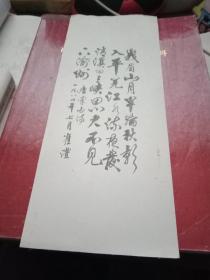 峨眉山月半輪秋影
入平羌江水流夜發
清溪向三峡思君不見
下渝州 唐李白诗
一九八一年七月